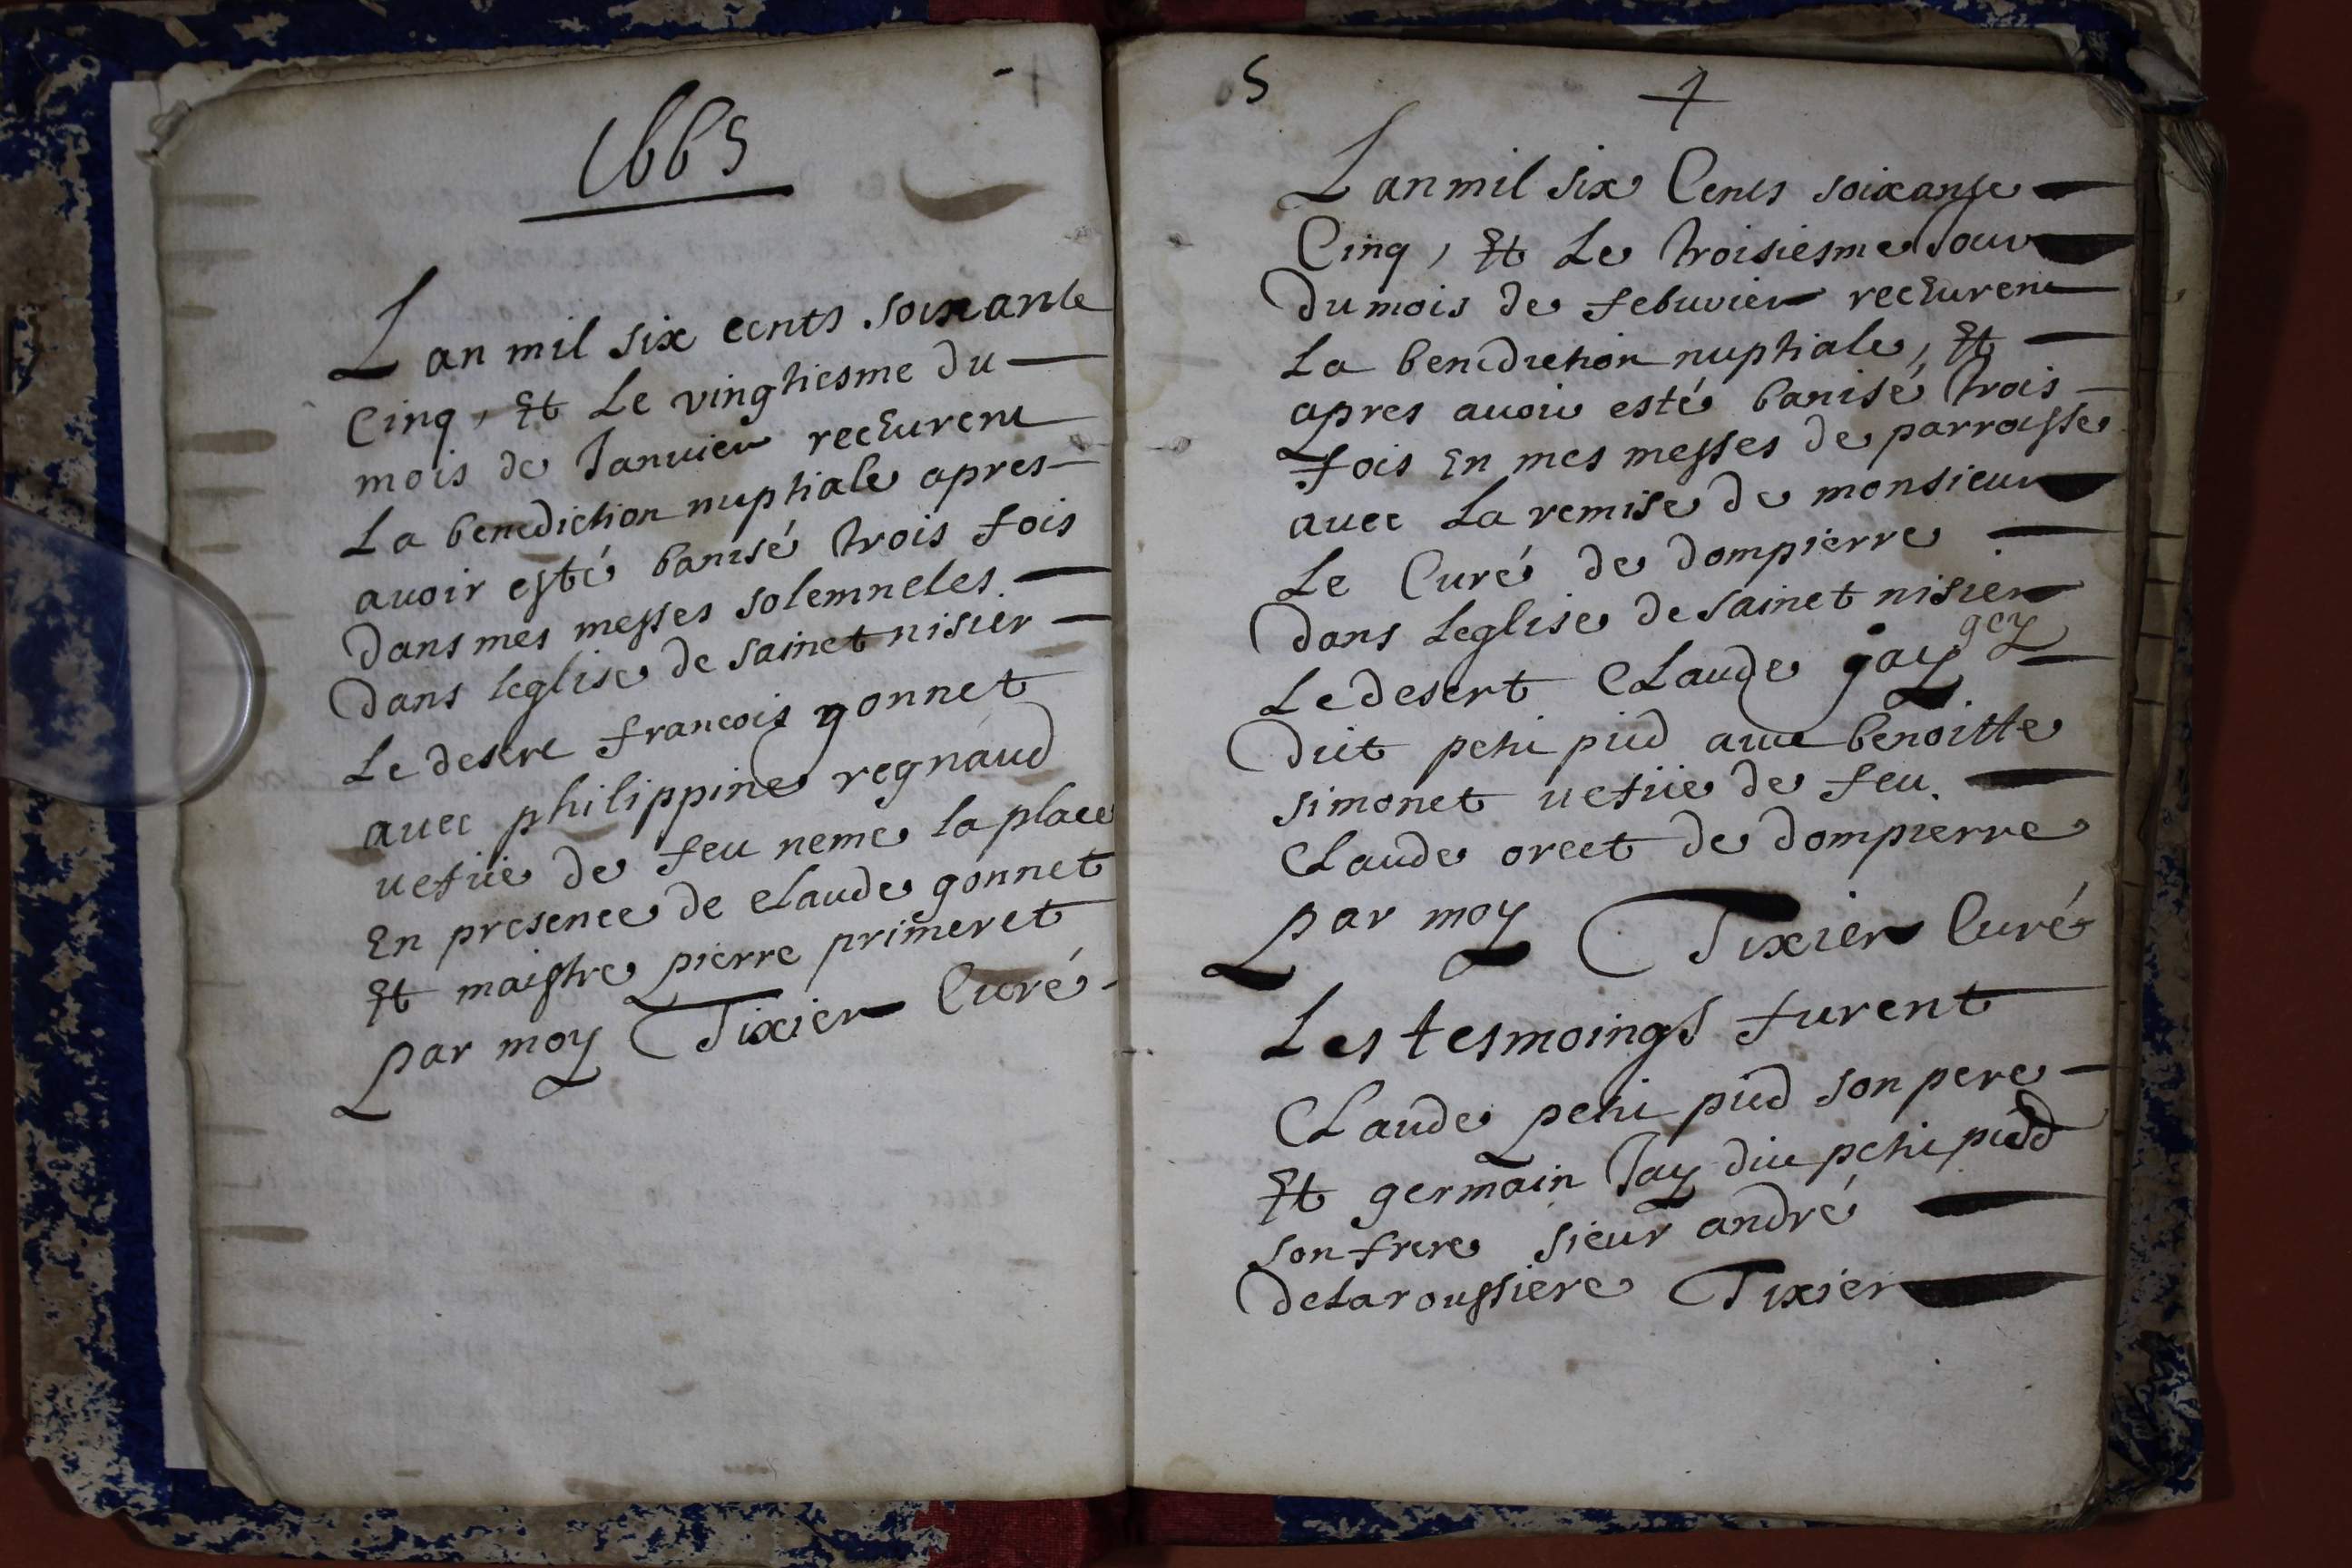 1665
Lan mil six cents soixante
Cinq, Et Le vingtiesme du
mois de Januier receurent
La benediction nuptiale apres
auoir esté banisé trois fois
dans mes messes solemneles
dans leglise de sainct nisier
Le desert francois gonnet
auec philippine regnaud
uefue de feu neme la place
En presence de claude gonnet
Et maistre pierre primeret
par moy Tixier Curé
5
Lan mil six Cents soixante
Cinq, Et Le troisiesme Jour
du mois de febuvier receurent
La benediction nuptiale, Et
apres auoir esté banisé trois
fois En mes messes de parroisse
auec La remise de monsieur
Le Curé de dompierre
dans Leglise de sainct nisier
gey
Le desert Claude gay
dit peti pied auec benoitte
simonet uefue de feu
Claude orcet de dompierre
par moy Tixier Curé
Les tesmoings furent
Claude peti pied son pere
Et germain Jay dit peti pied
son frere sieur andré
delaroussiere Tixier